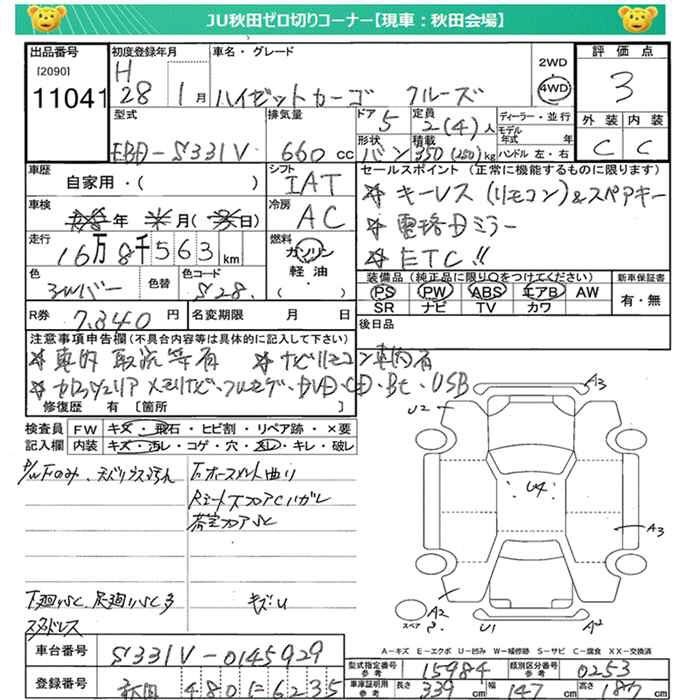 JU秋田ゼロ切りコーナー【現車：秋田会場】
出品番号
[2090]
11041
初度登録年月
H
28 1月
車名・グレード
ハイゼットカーゴ クルーズ
2WD
4WD
評価点
3
外装 内装
C C
型式
EBD-S331V
排気量
660 cc
ドア
5
形状
バン
定員
2(4)人
積載
350(250)kg
ディーラー・並行
モデル
年式 年
ハンドル 左・右
車歴
自家用・( )
シフト
IAT
セールスポイント (正常に機能するものに限ります)
キーレス(リモコン)&スペアキー
電格Dミラー
ETC!!
車検
年 月( 日)
冷房
AC
走行
16万8千563km
燃料
ガソリン
軽油
( )
色
シルバー
色替
色コード
S28
装備品(純正品に限り○をつけてください)
PS PW ABS エアB AW
SR ナビ TV カワ
新車保証書
有・無
R券
7,840円
名変期限 月 日
後日品
注意事項申告欄(不具合内容等は具体的に記入して下さい)
車内 取説等有 ナビリモコン車内有
カロッツェリア メモリナビ・フルセグ・DVD・CD・Bt・USB
修復歴 有[箇所 ]
検査員
記入欄
FW キズ・飛石・ヒビ割・リペア跡・×要
内装 キズ・汚レ・コゲ・穴・スレ・キレ・破レ
キズU
下廻りSC 足廻りSC多
スタッドレス
U2
A3
U4
A3
A2
U1
A2
スペア
A-キズ E-エクボ U-凹み W-補修跡 S-サビ C-腐食 XX-交換済
車台番号
S331V-0145929
登録番号
秋田 480 に 6235
型式指定番号
参考
15984
類別区分番号
参考
0253
車庫証明用
参考
長さ 339cm
幅 147cm
高さ 187cm